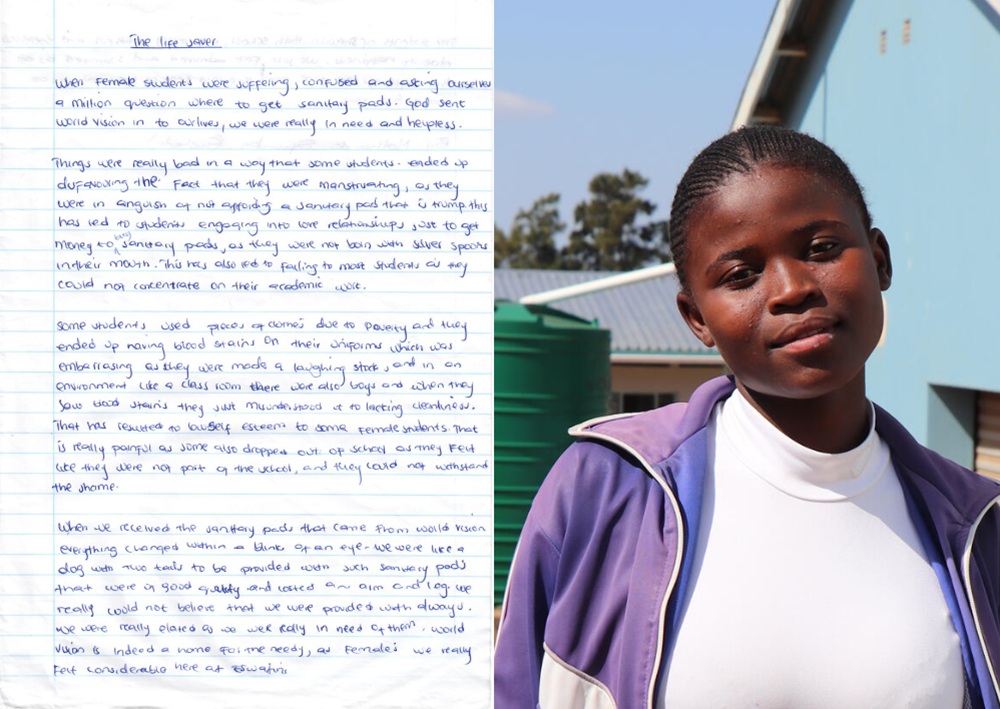 The life saver
When Female students were suffering, confused and asking ourselves
a million question where to get sanitary pads. God sent
world vision in to our lives, we were really in need and helpless.
Things were really bad in a way that some students. ended up
the fact that they were manstruating, as they
were in anguish of not affording a sanitary pad that is trump. this
has led to students engaging into love relationships just to get
money to buy sanitary pads, as they were not born with silver spoons
in their mouth. This has also led to failing to most students as they
could not concentrate on their academic work.
Some students used pieces of due to poverty and they
ended up having blood stains on their uniforms which was
embarrasing as they were made a laughing stock, and in an
environment like a class room there were also boys and when they
saw blood stains they just misunderstood it to lacking cleanliness.
That has resulted to low self esteem to some female students. That
is really painful as some also dropped out of school as they felt
like they were not part of the school, and they could not withstand
the shame.
When we received the sanitary pads that came from world vision
everything changed within a blink of an eye. we were like a
dog with two tails to be provided with such sanitary pads
that were in good quality and costed an arm and leg. we
really could not believe that we were provided with always.
we were really elated as we were really in need of them. World
vision is indeed a home for the needy, as females we really
felt considerable here at Eswatini